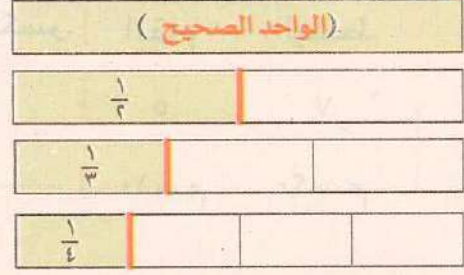 (الواحد الصحيح)
١/٢
١/٣
١/٤